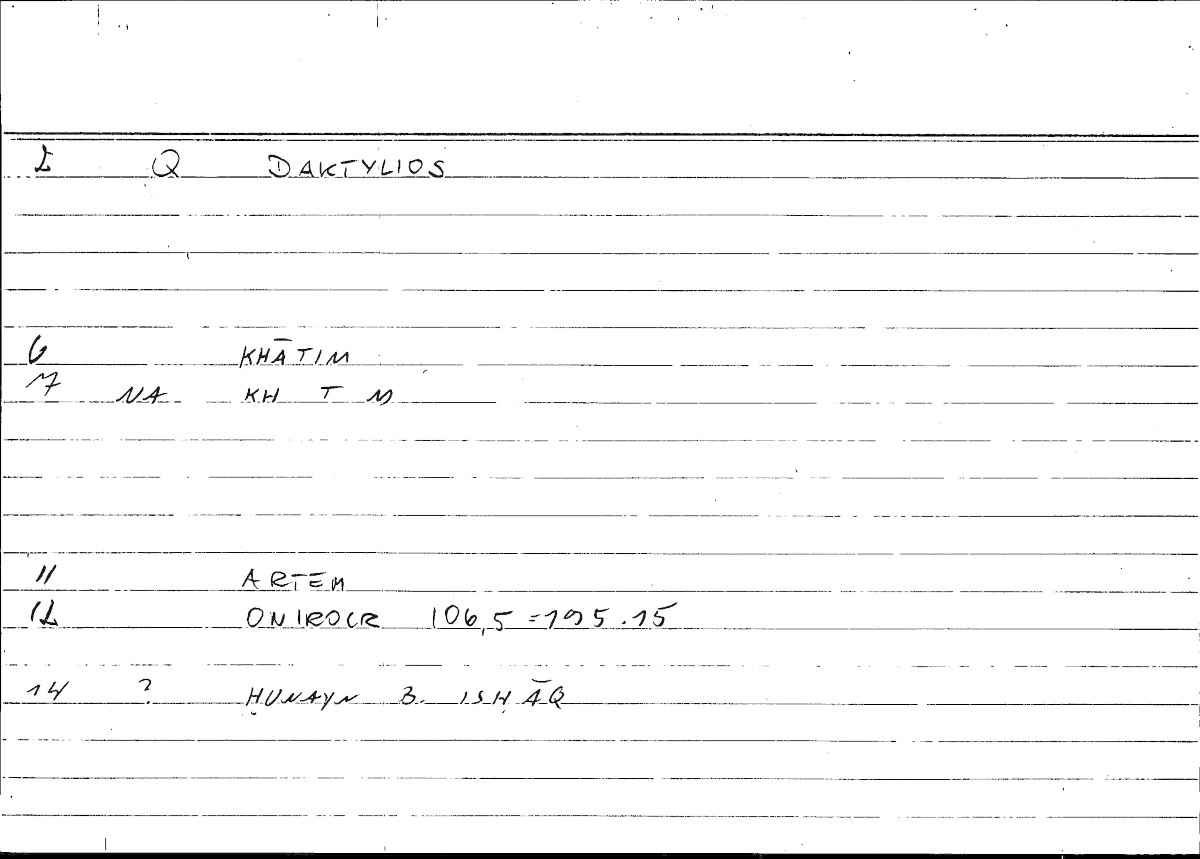 2 Q DAKTYLIOS
6 KHĀTIM
7 NA KH T M
11 ARTEM
12 ONIROCR 106,5=195.15
14 ? ḤUNAYN B. ISḤĀQ